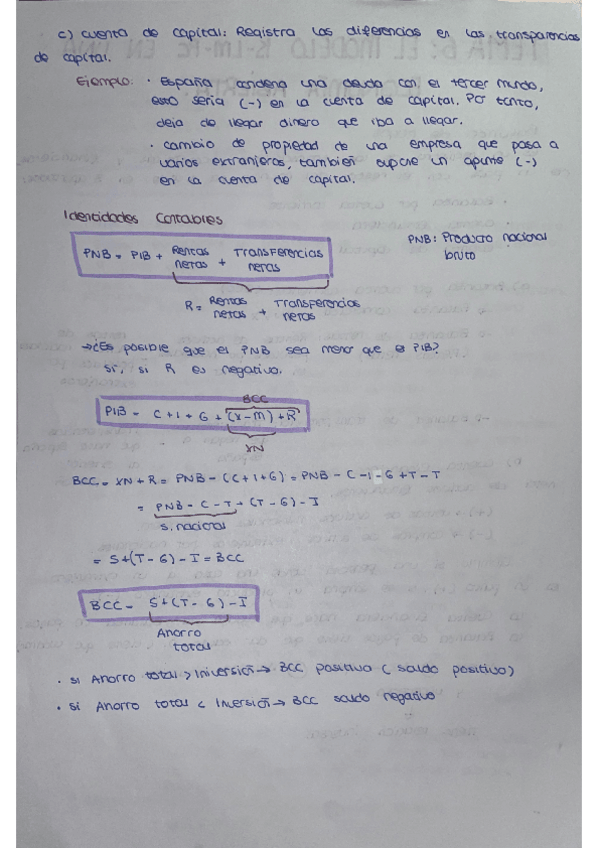 c) cuenta de capital: Registra las diferencias en las transparencias
de capital.
Ejemplo: · España condena una deuda con el tercer mundo,
esto sería (-) en la cuenta de capital. Por tanto,
deja de llegar dinero que iba a llegar.
· cambio de propiedad de una empresa que pasa a
varios extranjeros, también supone un apunte (-)
en la cuenta de capital.
Identidades Contables
PNB = PIB + Rentas netas + Transferencias netas
PNB: Producto nacional bruto
R = Rentas netas + Transferencias netas
→ ¿Es posible que el PNB sea menor que el PIB?
sí, si R es negativo.
BCC
PIB = C + I + G + (X - M) + R
XN
BCC = XN + R = PNB - (C + I + G) = PNB - C - I - G + T - T
= PNB - C - T + (T - G) - I
S. nacional
= S + (T - G) - I = BCC
BCC = S + (T - G) - I
Ahorro
total
· si Ahorro total > Inversión → BCC positiva (saldo positivo)
· si Ahorro total < Inversión → BCC saldo negativo